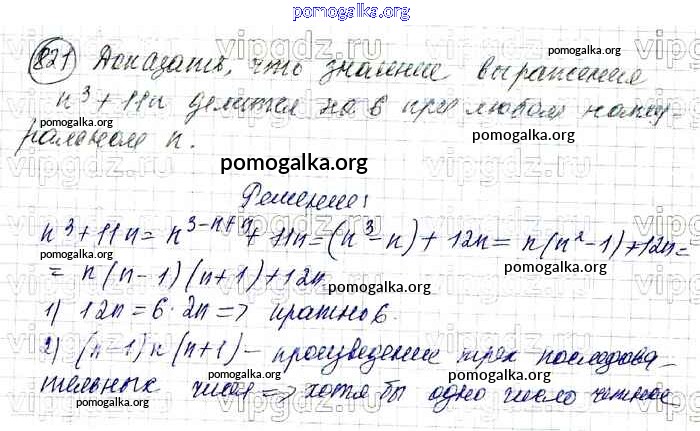 pomogalka.org
821 Доказать, что значение выражения
pomogalka.org
n³+11n делится на 6 при любом нату-
pomogalka.org
ральном n.
pomogalka.org
Решение:
pomogalka.org
n³+11n = n^3-n+n + 11n = (n³-n) + 12n = n(n²-1)+12n =
= n(n-1)(n+1)+12n
pomogalka.org
1) 12n = 6·2n => кратно 6.
pomogalka.org
2) (n-1)n(n+1) - произведение трех последова-
pomogalka.org
тельных чисел => хотя бы одно число четное
pomogalka.org
vipgdz.ru